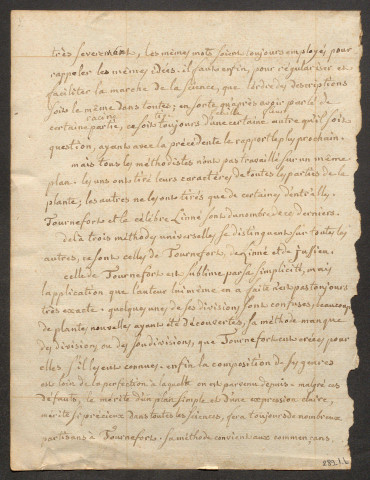 très severement, les mêmes mots soient toujours employés pour
rappeler les mêmes idées. il faut enfin, pour régulariser et
faciliter la marche de la science, que l'ordre des descriptions
soit le même dans toutes; en sorte, qu'après avoir parlé de
certaine partie, ce soit toujours d'une certaine autre qu'il soit
racine feuille
question, ayant avec la précédente le rapport le plus prochain.
mais tous les méthodistes n'ont pas travaillé sur un même
plan. les uns ont tiré leurs caractères de toutes les parties de la
plante; les autres ne les ont tirés que de certaines d'entr'elles.
Tournefort et le célèbre Linné sont du nombre de ces derniers.
delà trois méthodes universelles se distinguent sur toutes les
autres, ce sont celles de Tournefort, de Linné et de Jussieu.
celle de Tournefort est sublime par sa simplicité, mais
l'application que l'auteur lui même en a faite n'est pas toujours
très exacte. quelques unes de ses divisions sont confuses, beaucoup
de plantes nouvelles ayant été découvertes, sa méthode manque
des divisions ou des soudivisions, que Tournefort eut créées pour
elles s'il les eut connues. enfin la composition de ses genres
est loin de la perfection à laquelle on est parvenu depuis. malgré ces
defauts, le mérite d'un plan simple et d'une expression claire,
mérite si précieux dans toutes les sciences, fera toujours de nombreux
partisans à Tournefort. sa méthode convient aux commençans.